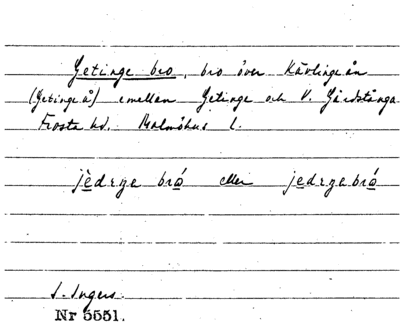 Getinge bro, bro över Kävlingeån
(Getinge å) emellan Getinge och V. Gårdstånga
Frosta hd. Malmöhus l.
jèdɛŋa brá eller jedɛŋabrá
I. Ingers.
Nr 5551.